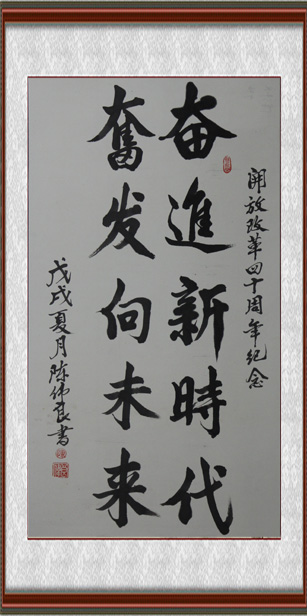 開放改革四十周年紀念
奋進新時代
奮发向未来
戊戌夏月陈伟良書